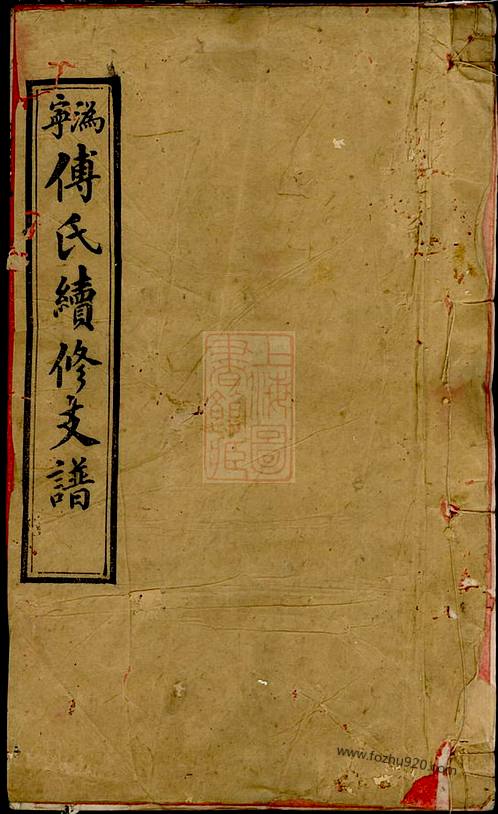 溈寧傅氏續修支譜
上海圖書館藏
www.fozhu920.com